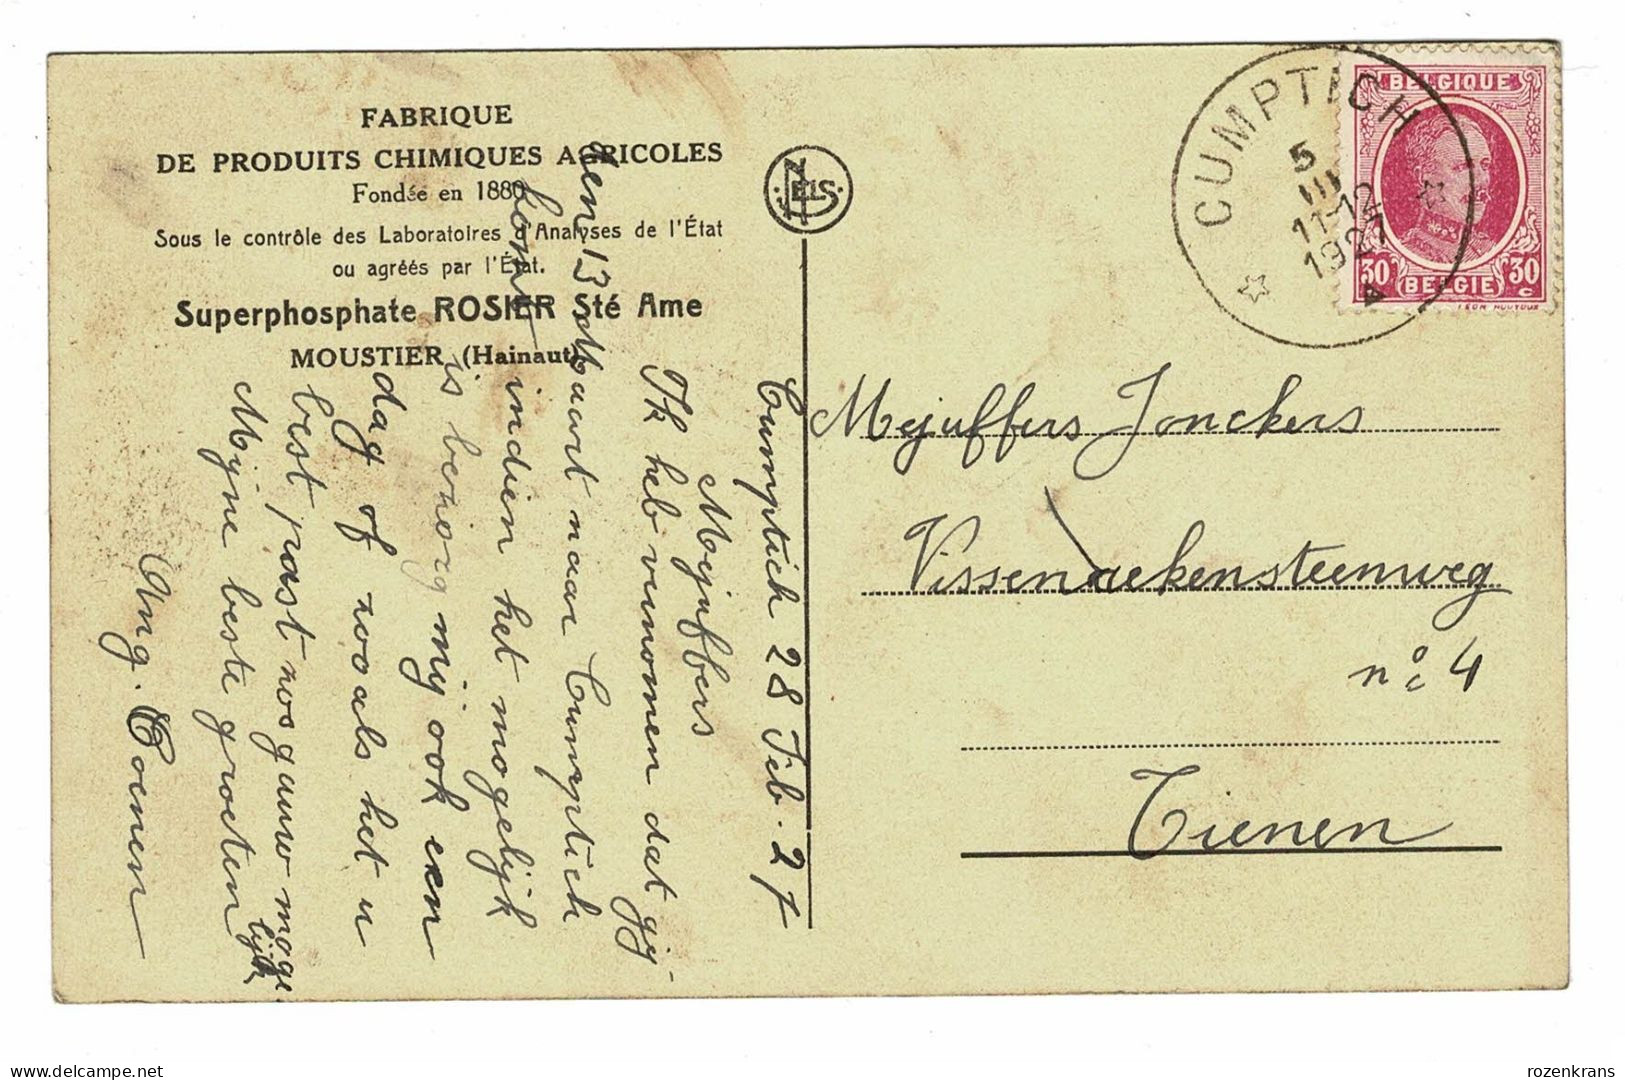 FABRIQUE
DE PRODUITS CHIMIQUES AGRICOLES
Fondée en 1880
Sous le contrôle des Laboratoires d'Analyses de l'État
ou agréés par l'État.
Superphosphate ROSIER Sté Ame
MOUSTIER (Hainaut)
NELS
CUMPTICH
5
III
11-12
1927
A
BELGIQUE
30 BELGIE 30
c c
LÉON HOUYOUX
Cumptich 28 Feb. 27
Mejuffers
Ik heb vernomen dat gij
den 13 Maart naar Cumptich
komt
indien het mogelijk
is bezorg mij ook een
dag of zooals het u
best past zoo gauw mogelijk
Mijne beste groeten
Ang. Coenen
Mejuffers Jonckers
Vissenaekensteenweg
n° 4
Tienen
delcampe.net
rozenkrans